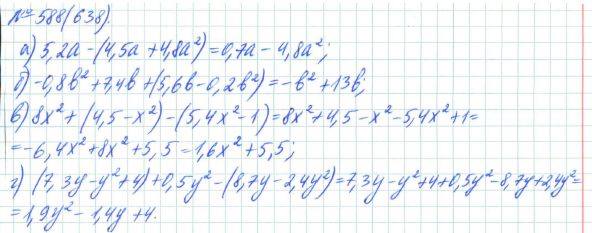 № 588(638).
а) 5,2a - (4,5a + 4,8a²) = 0,7a - 4,8a²;
б) -0,8b² + 7,4b + (5,6b - 0,2b²) = -b² + 13b;
в) 8x² + (4,5 - x²) - (5,4x² - 1) = 8x² + 4,5 - x² - 5,4x² + 1 =
= -6,4x² + 8x² + 5,5 = 1,6x² + 5,5;
г) (7,3y - y² + 4) + 0,5y² - (8,7y - 2,4y²) = 7,3y - y² + 4 + 0,5y² - 8,7y + 2,4y² =
= 1,9y² - 1,4y + 4.